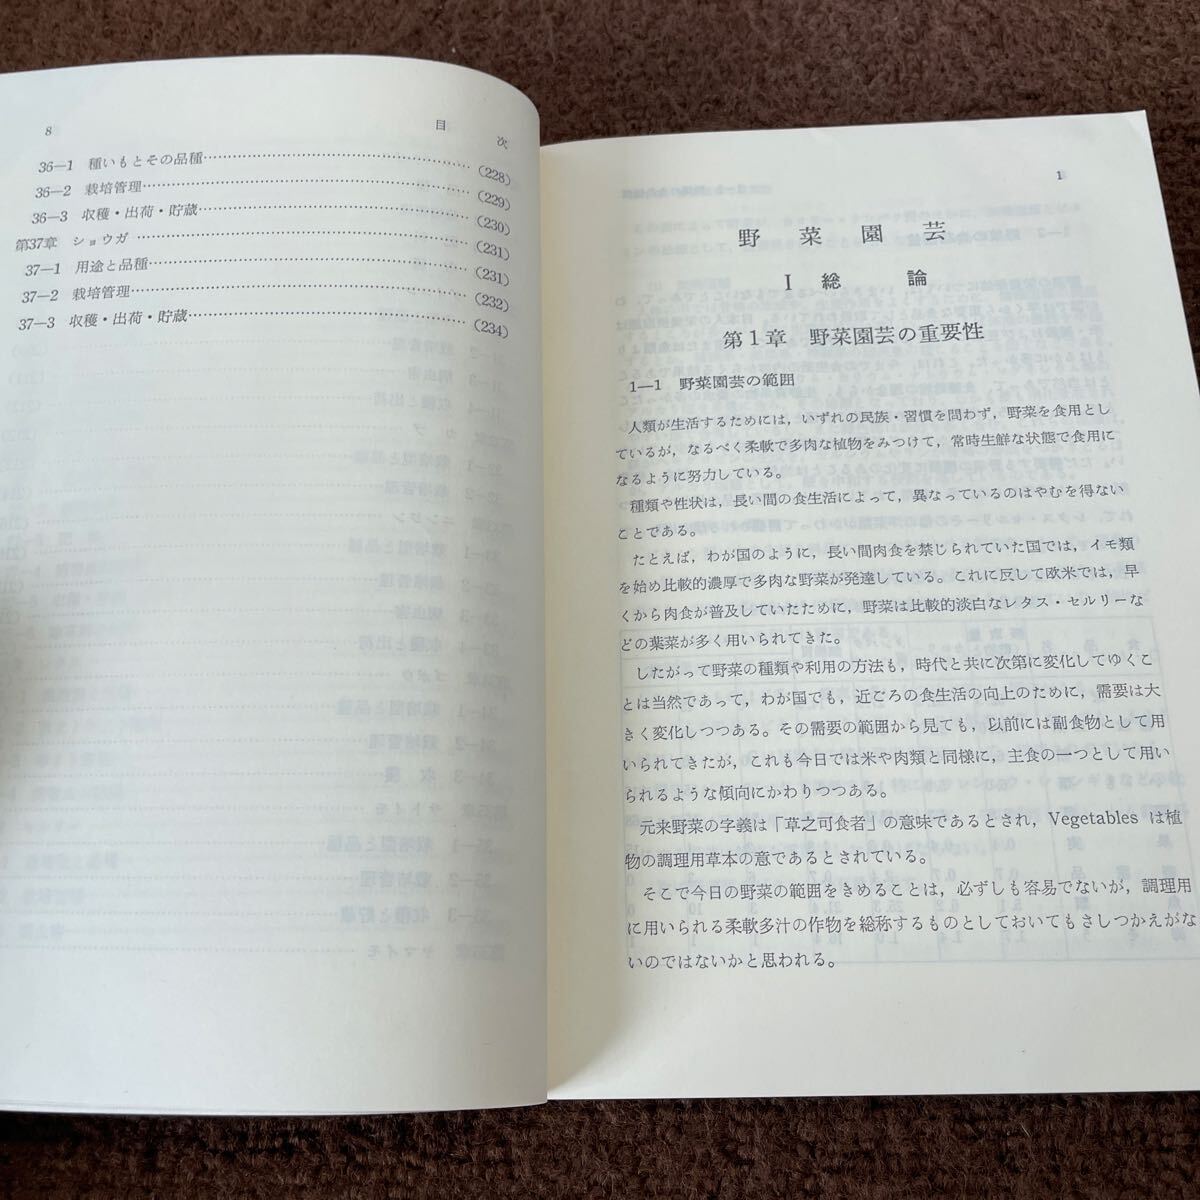 8 目次
36—1 種いもとその品種……………………………………(228)
36—2 栽培管理……………………………………(229)
36—3 収穫・出荷・貯蔵……………………………………(230)
第37章 ショウガ……………………………………(231)
37—1 用途と品種……………………………………(231)
37—2 栽培管理……………………………………(232)
37—3 収穫・出荷・貯蔵……………………………………(234)
1
野菜園芸
I 総論
第1章 野菜園芸の重要性
1—1 野菜園芸の範囲
人類が生活するためには，いずれの民族・習慣を問わず，野菜を食用とし
ているが，なるべく柔軟で多肉な植物をみつけて，常時生鮮な状態で食用に
なるように努力している。
種類や性状は，長い間の食生活によって，異なっているのはやむを得ない
ことである。
たとえば，わが国のように，長い間肉食を禁じられていた国では，イモ類
を始め比較的濃厚で多肉な野菜が発達している。これに反して欧米では，早
くから肉食が普及していたために，野菜は比較的淡白なレタス・セルリーな
どの葉菜が多く用いられてきた。
したがって野菜の種類や利用の方法も，時代と共に次第に変化してゆくこ
とは当然であって，わが国でも，近ごろの食生活の向上のために，需要は大
きく変化しつつある。その需要の範囲から見ても，以前には副食物として用
いられてきたが，これも今日では米や肉類と同様に，主食の一つとして用い
られるような傾向にかわりつつある。
元来野菜の字義は「草之可食者」の意味であるとされ，Vegetables は植
物の調理用草本の意であるとされている。
そこで今日の野菜の範囲をきめることは，必ずしも容易でないが，調理用
に用いられる柔軟多汁の作物を総称するものとしておいてもさしつかえがな
いのではないかと思われる。